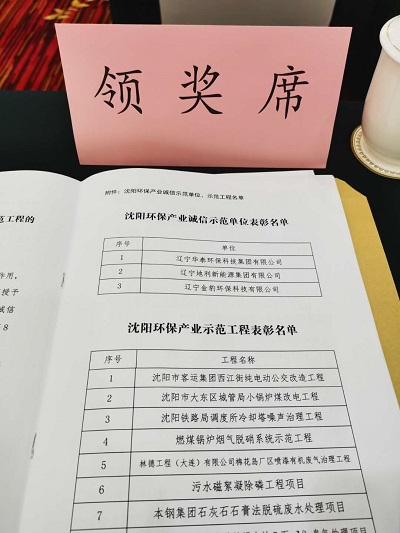 领奖席
附件：沈阳环保产业诚信示范单位、示范工程名单
沈阳环保产业诚信示范单位表彰名单
序号 单位
1 辽宁华泰环保科技集团有限公司
2 辽宁地利新能源集团有限公司
3 辽宁金豹环保科技有限公司
沈阳环保产业示范工程表彰名单
序号 工程名称
1 沈阳市客运集团西江街纯电动公交改造工程
2 沈阳市大东区城管局小锅炉煤改电工程
3 沈阳铁路局调度所冷却塔噪声治理工程
4 燃煤锅炉烟气脱硝系统示范工程
5 林德工程（大连）有限公司棉花岛厂区喷漆有机废气治理工程
6 污水磁絮凝除磷工程项目
7 本钢集团石灰石石膏法脱硫废水处理项目
范工程的
作用，
授予
诚信
8